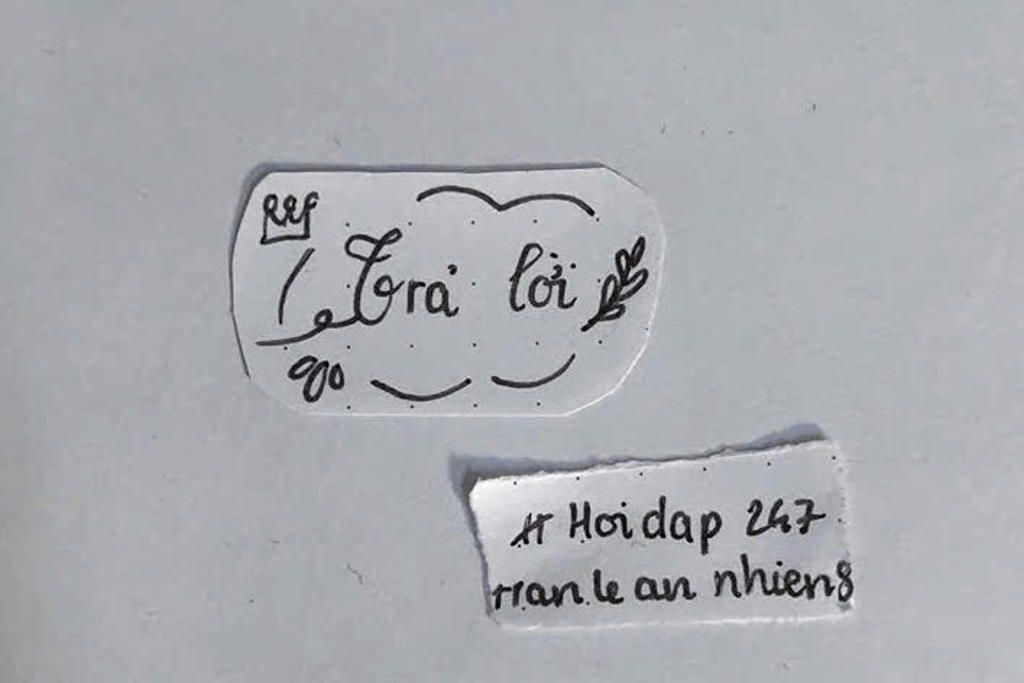 Trả lời
# Hoidap 247
tran le an nhien8